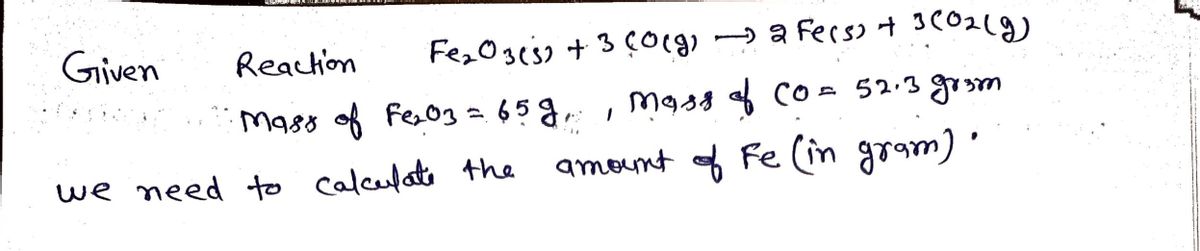 Given Reaction Fe₂O₃(s) + 3 CO(g) → 2 Fe(s) + 3CO₂(g)
Mass of Fe₂O₃ = 65g, , Mass of CO = 52.3 gram
we need to calculate the amount of Fe (in gram).